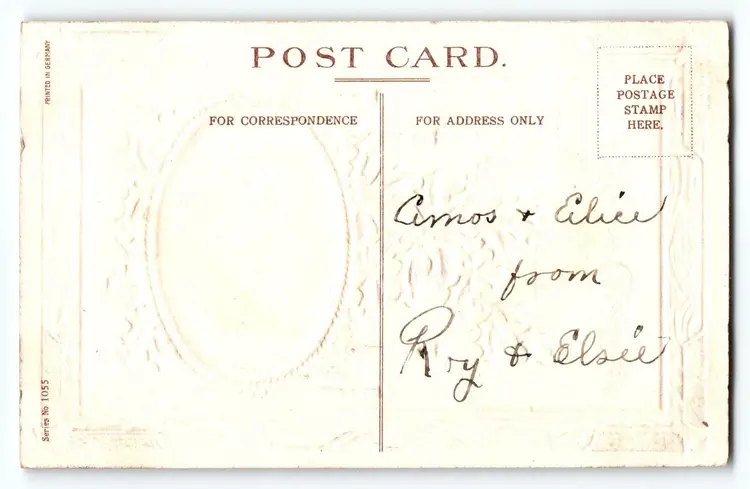 POST CARD.
PRINTED IN GERMANY
PLACE
POSTAGE
STAMP
HERE.
FOR CORRESPONDENCE
FOR ADDRESS ONLY
Amos & Elice
from
Roy & Elsie
Series No 1055